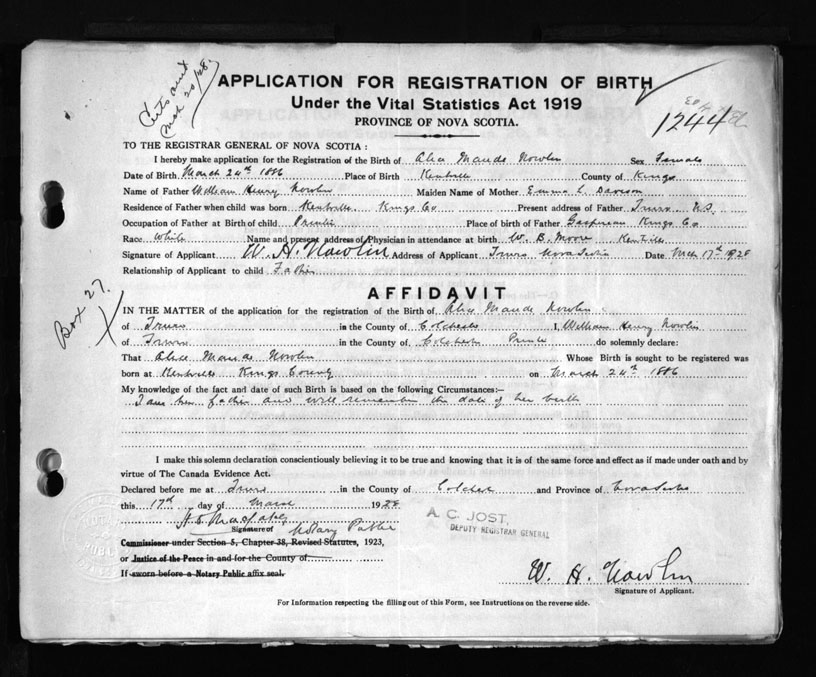 Certs and
Mch 20/28.
APPLICATION FOR REGISTRATION OF BIRTH
Under the Vital Statistics Act 1919
PROVINCE OF NOVA SCOTIA.
1244
TO THE REGISTRAR GENERAL OF NOVA SCOTIA :
I hereby make application for the Registration of the Birth of Alice Maude Nowlin Sex Female
Date of Birth March 24th 1886 Place of Birth Kentville County of Kings
Name of Father William Henry Nowlin Maiden Name of Mother Emma L Davison
Residence of Father when child was born Kentville Kings Co Present address of Father Truro N.S.
Occupation of Father at Birth of child Printer Place of birth of Father Gaspereau Kings Co
Race White Name and present address of Physician in attendance at birth W. B. Moore Kentville
Signature of Applicant W. H. Nowlin Address of Applicant Truro Nova Scotia Date Mch 17th 1928
Relationship of Applicant to child Father
Box 27.
AFFIDAVIT
IN THE MATTER of the application for the registration of the Birth of Alice Maude Nowlin
of Truro in the County of Colchester I, William Henry Nowlin
of Truro in the County of Colchester Printer do solemnly declare:
That Alice Maude Nowlin Whose Birth is sought to be registered was
born at Kentville Kings County on March 24th 1886
My knowledge of the fact and date of such Birth is based on the following Circumstances:—
I am her father and will remember the date of her birth
I make this solemn declaration conscientiously believing it to be true and knowing that it is of the same force and effect as if made under oath and by
virtue of The Canada Evidence Act.
Declared before me at Truro in the County of Colchester and Province of Nova Scotia
this 17th day of March 1928
Signature of Notary Public
A. C. JOST,
DEPUTY REGISTRAR GENERAL
Commissioner under Section 5, Chapter 38, Revised Statutes, 1923,
or Justice of the Peace in and for the County of
If sworn before a Notary Public affix seal.
W. H. Nowlin
Signature of Applicant.
For Information respecting the filling out of this Form, see Instructions on the reverse side.